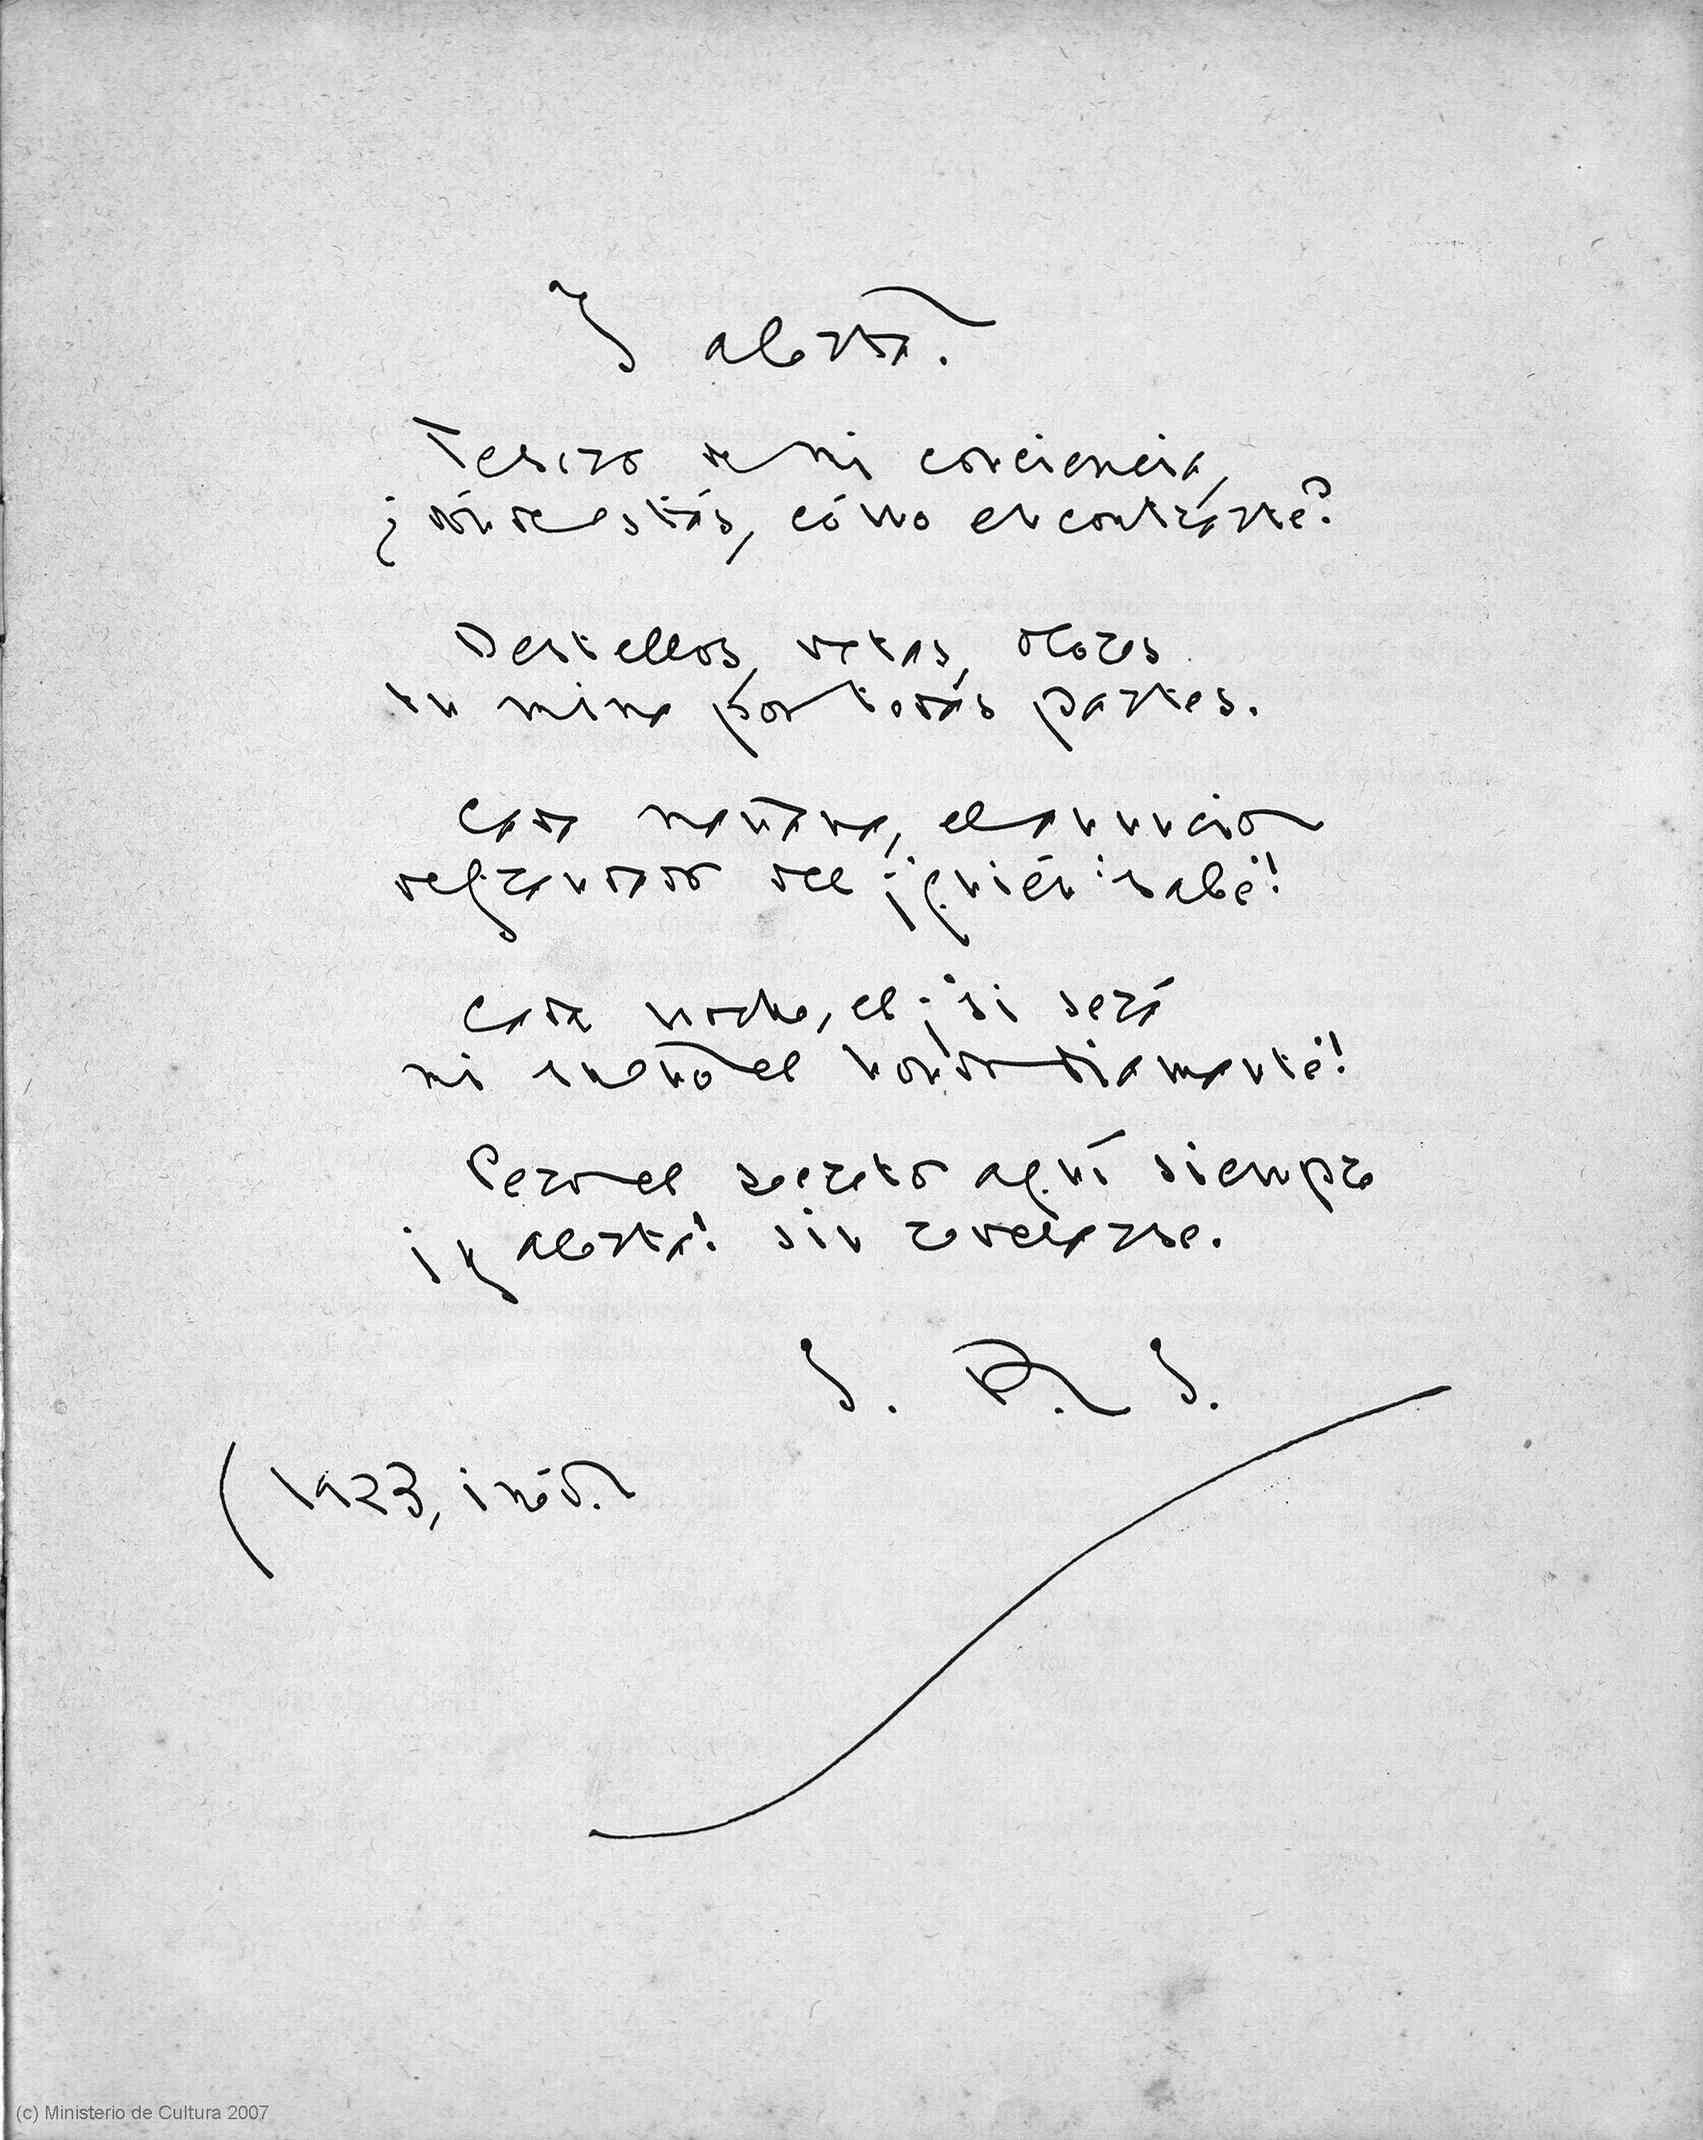 Y alerta.
Tesoro de mi conciencia,
¿dónde estás, cómo encontrárte?
Destellos, vetas, olores
tu mina por todás partes.
Cada mañana, el anuncio
del granado del ¡quién sabe!
Cada noche, el ¡si será
mi sueño el hondo diamante!
Pero el secreto aquí siempre
¡y alerta! sin revelarse.
J. R. J.
(1923, inéd.
(c) Ministerio de Cultura 2007